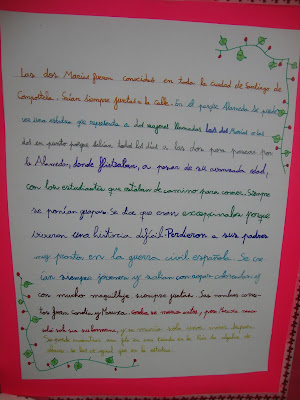 Las dos Marías fueron conocidas en toda la ciudad de Santiago de
Compostela. Salían siempre juntas a la calle. En el parque Alameda se puede
ver una estatua que representa a dos mujeres llamadas las dos Marías a las
dos en punto porque salían todos los días a las dos para pasear por
la Alameda, donde flirteaban, a pesar de su avanzada edad,
con los estudiantes que estaban de camino para comer. Siempre
se ponían guapas. Se dice que eran excepcionales porque
vivieron una historia difícil. Perdieron a sus padres
muy pronto en la guerra civil española. Se
siempre jóvenes y salían con ropa colorada y
con mucho maquillaje siempre juntas. Sus nombres
fueron Coralia y Maruxa. se murió antes, pero Maruxa
sin su hermana, y se murió sola unos meses después.
Se puede encontrar una foto en una tienda en la Rúa
. Se las ve igual que en la estatua.